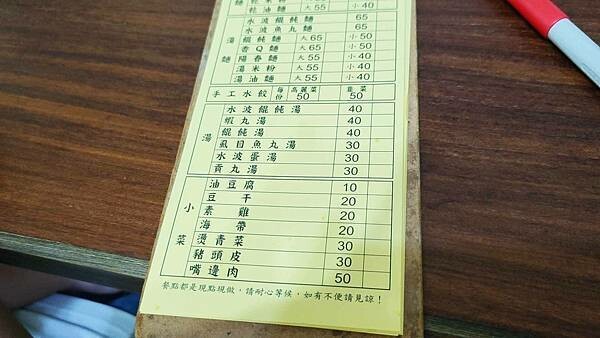 麵 乾米粉 大55 小40
乾油麵 大55 小40
水波餛飩麵 65
水波魚丸麵 65
湯 餛飩麵 大65 小50
香Q麵 大65 小50
麵 陽春麵 大55 小40
湯米粉 大55 小40
湯油麵 大55 小40
手工水餃 每份 高麗菜 50 韭菜 50
水波餛飩湯 40
蝦丸湯 40
湯 餛飩湯 40
虱目魚丸湯 30
水波蛋湯 30
貢丸湯 30
油豆腐 10
小 豆干 20
素雞 20
海帶 20
菜 燙青菜 30
豬頭皮 30
嘴邊肉 50
餐點都是現點現做，請耐心等候，如有不便請見諒！